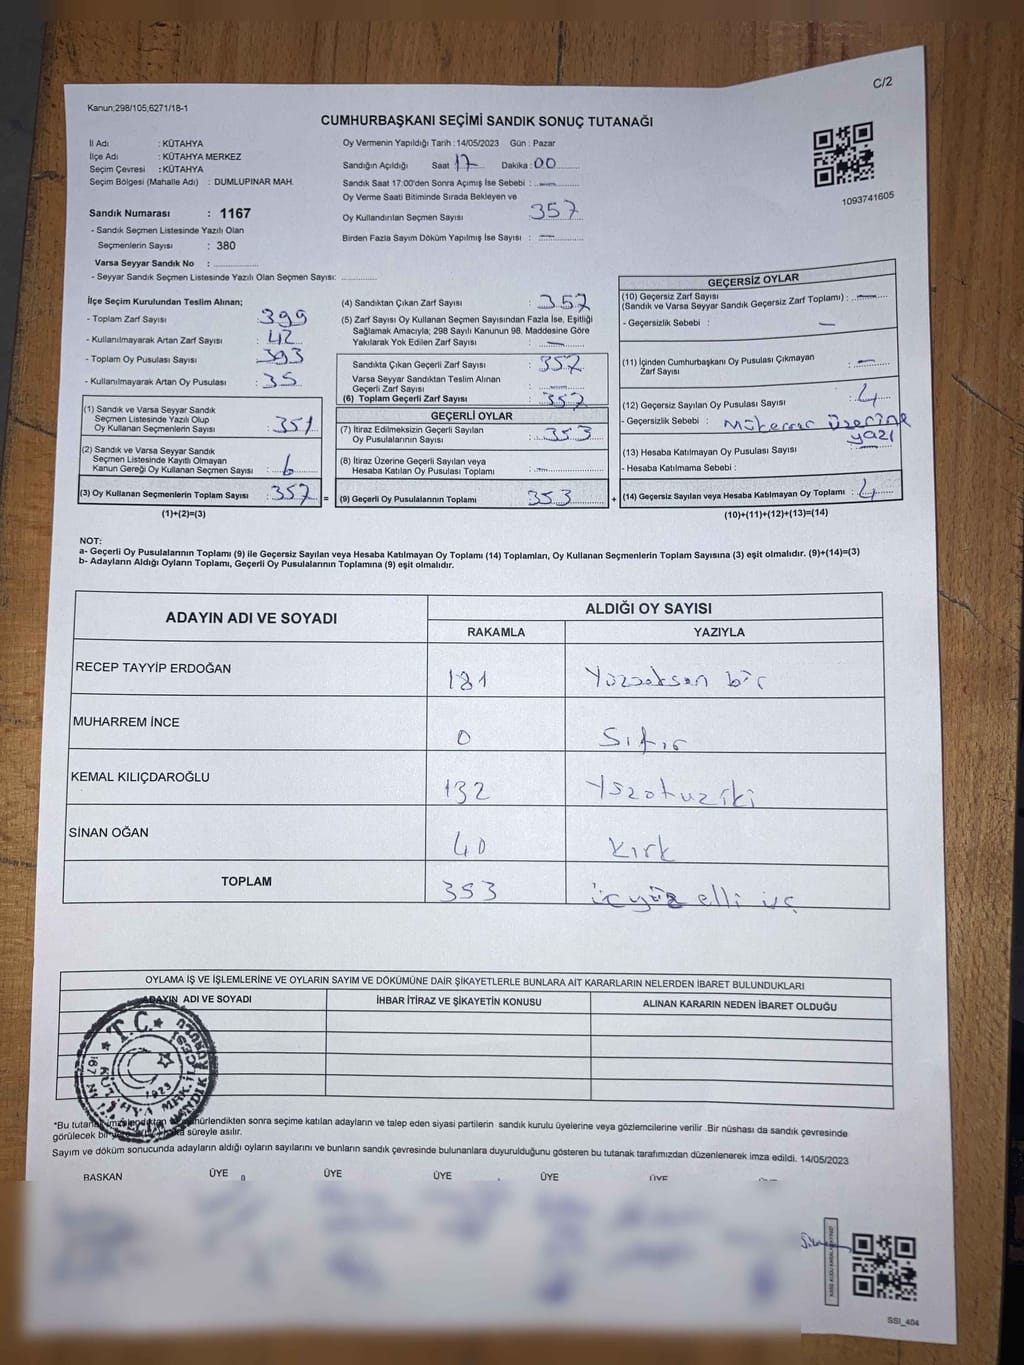 C/2
Kanun;298/105,6271/18-1
CUMHURBAŞKANI SEÇİMİ SANDIK SONUÇ TUTANAĞI
İl Adı : KÜTAHYA
İlçe Adı : KÜTAHYA MERKEZ
Seçim Çevresi : KÜTAHYA
Seçim Bölgesi (Mahalle Adı) : DUMLUPINAR MAH.
Sandık Numarası : 1167
- Sandık Seçmen Listesinde Yazılı Olan
Seçmenlerin Sayısı : 380
Varsa Seyyar Sandık No :
- Seyyar Sandık Seçmen Listesinde Yazılı Olan Seçmen Sayısı:
Oy Vermenin Yapıldığı Tarih : 14/05/2023 Gün : Pazar
Sandığın Açıldığı Saat 17 Dakika : 00
Sandık Saat 17:00'den Sonra Açımış İse Sebebi : —
Oy Verme Saati Bitiminde Sırada Bekleyen ve
Oy Kullandırılan Seçmen Sayısı 357
Birden Fazla Sayım Döküm Yapılmış İse Sayısı : —
1093741605
İlçe Seçim Kurulundan Teslim Alınan;
- Toplam Zarf Sayısı : 399
- Kullanılmayarak Artan Zarf Sayısı : 42
- Toplam Oy Pusulası Sayısı : 393
- Kullanılmayarak Artan Oy Pusulası : 35
(1) Sandık ve Varsa Seyyar Sandık
Seçmen Listesinde Yazılı Olup
Oy Kullanan Seçmenlerin Sayısı : 351
(2) Sandık ve Varsa Seyyar Sandık
Seçmen Listesinde Kayıtlı Olmayan
Kanun Gereği Oy Kullanan Seçmen Sayısı : 6
(3) Oy Kullanan Seçmenlerin Toplam Sayısı : 357 =
(1)+(2)=(3)
(4) Sandıktan Çıkan Zarf Sayısı : 357
(5) Zarf Sayısı Oy Kullanan Seçmen Sayısından Fazla İse, Eşitliği
Sağlamak Amacıyla; 298 Sayılı Kanunun 98. Maddesine Göre
Yakılarak Yok Edilen Zarf Sayısı : —
Sandıkta Çıkan Geçerli Zarf Sayısı : 357
Varsa Seyyar Sandıktan Teslim Alınan
Geçerli Zarf Sayısı : —
(6) Toplam Geçerli Zarf Sayısı : 357
GEÇERLİ OYLAR
(7) İtiraz Edilmeksizin Geçerli Sayılan
Oy Pusulalarının Sayısı : 353
(8) İtiraz Üzerine Geçerli Sayılan veya
Hesaba Katılan Oy Pusulası Toplamı : —
(9) Geçerli Oy Pusulalarının Toplamı 353 +
GEÇERSİZ OYLAR
(10) Geçersiz Zarf Sayısı
(Sandık ve Varsa Seyyar Sandık Geçersiz Zarf Toplamı) : —
- Geçersizlik Sebebi : —
(11) İçinden Cumhurbaşkanı Oy Pusulası Çıkmayan
Zarf Sayısı : —
(12) Geçersiz Sayılan Oy Pusulası Sayısı : 4
- Geçersizlik Sebebi : Mükerrer üzerine
yazı
(13) Hesaba Katılmayan Oy Pusulası Sayısı
- Hesaba Katılmama Sebebi :
(14) Geçersiz Sayılan veya Hesaba Katılmayan Oy Toplamı : 4
(10)+(11)+(12)+(13)=(14)
NOT:
a- Geçerli Oy Pusulalarının Toplamı (9) ile Geçersiz Sayılan veya Hesaba Katılmayan Oy Toplamı (14) Toplamları, Oy Kullanan Seçmenlerin Toplam Sayısına (3) eşit olmalıdır. (9)+(14)=(3)
b- Adayların Aldığı Oyların Toplamı, Geçerli Oy Pusulalarının Toplamına (9) eşit olmalıdır.
ADAYIN ADI VE SOYADI ALDIĞI OY SAYISI
RAKAMLA YAZIYLA
RECEP TAYYİP ERDOĞAN 181 Yüzseksen bir
MUHARREM İNCE 0 Sıfır
KEMAL KILIÇDAROĞLU 132 Yüzotuziki
SİNAN OĞAN 40 Kırk
TOPLAM 353 üçyüz elli üç
OYLAMA İŞ VE İŞLEMLERİNE VE OYLARIN SAYIM VE DÖKÜMÜNE DAİR ŞİKAYETLERLE BUNLARA AİT KARARLARIN NELERDEN İBARET BULUNDUKLARI
ADAYIN ADI VE SOYADI İHBAR İTİRAZ VE ŞİKAYETİN KONUSU ALINAN KARARIN NEDEN İBARET OLDUĞU
T.C.
1923
*Bu tutanak sonra seçime katılan adayların ve talep eden siyasi partilerin sandık kurulu üyelerine veya gözlemcilerine verilir .Bir nüshası da sandık çevresinde
görülecek bir süreyle asılır.
Sayım ve döküm sonucunda adayların aldığı oyların sayılarını ve bunların sandık çevresinde bulunanlara duyurulduğunu gösteren bu tutanak tarafımızdan düzenlenerek imza edildi. 14/05/2023
BAŞKAN ÜYE ÜYE ÜYE ÜYE ÜYE
SSI_404